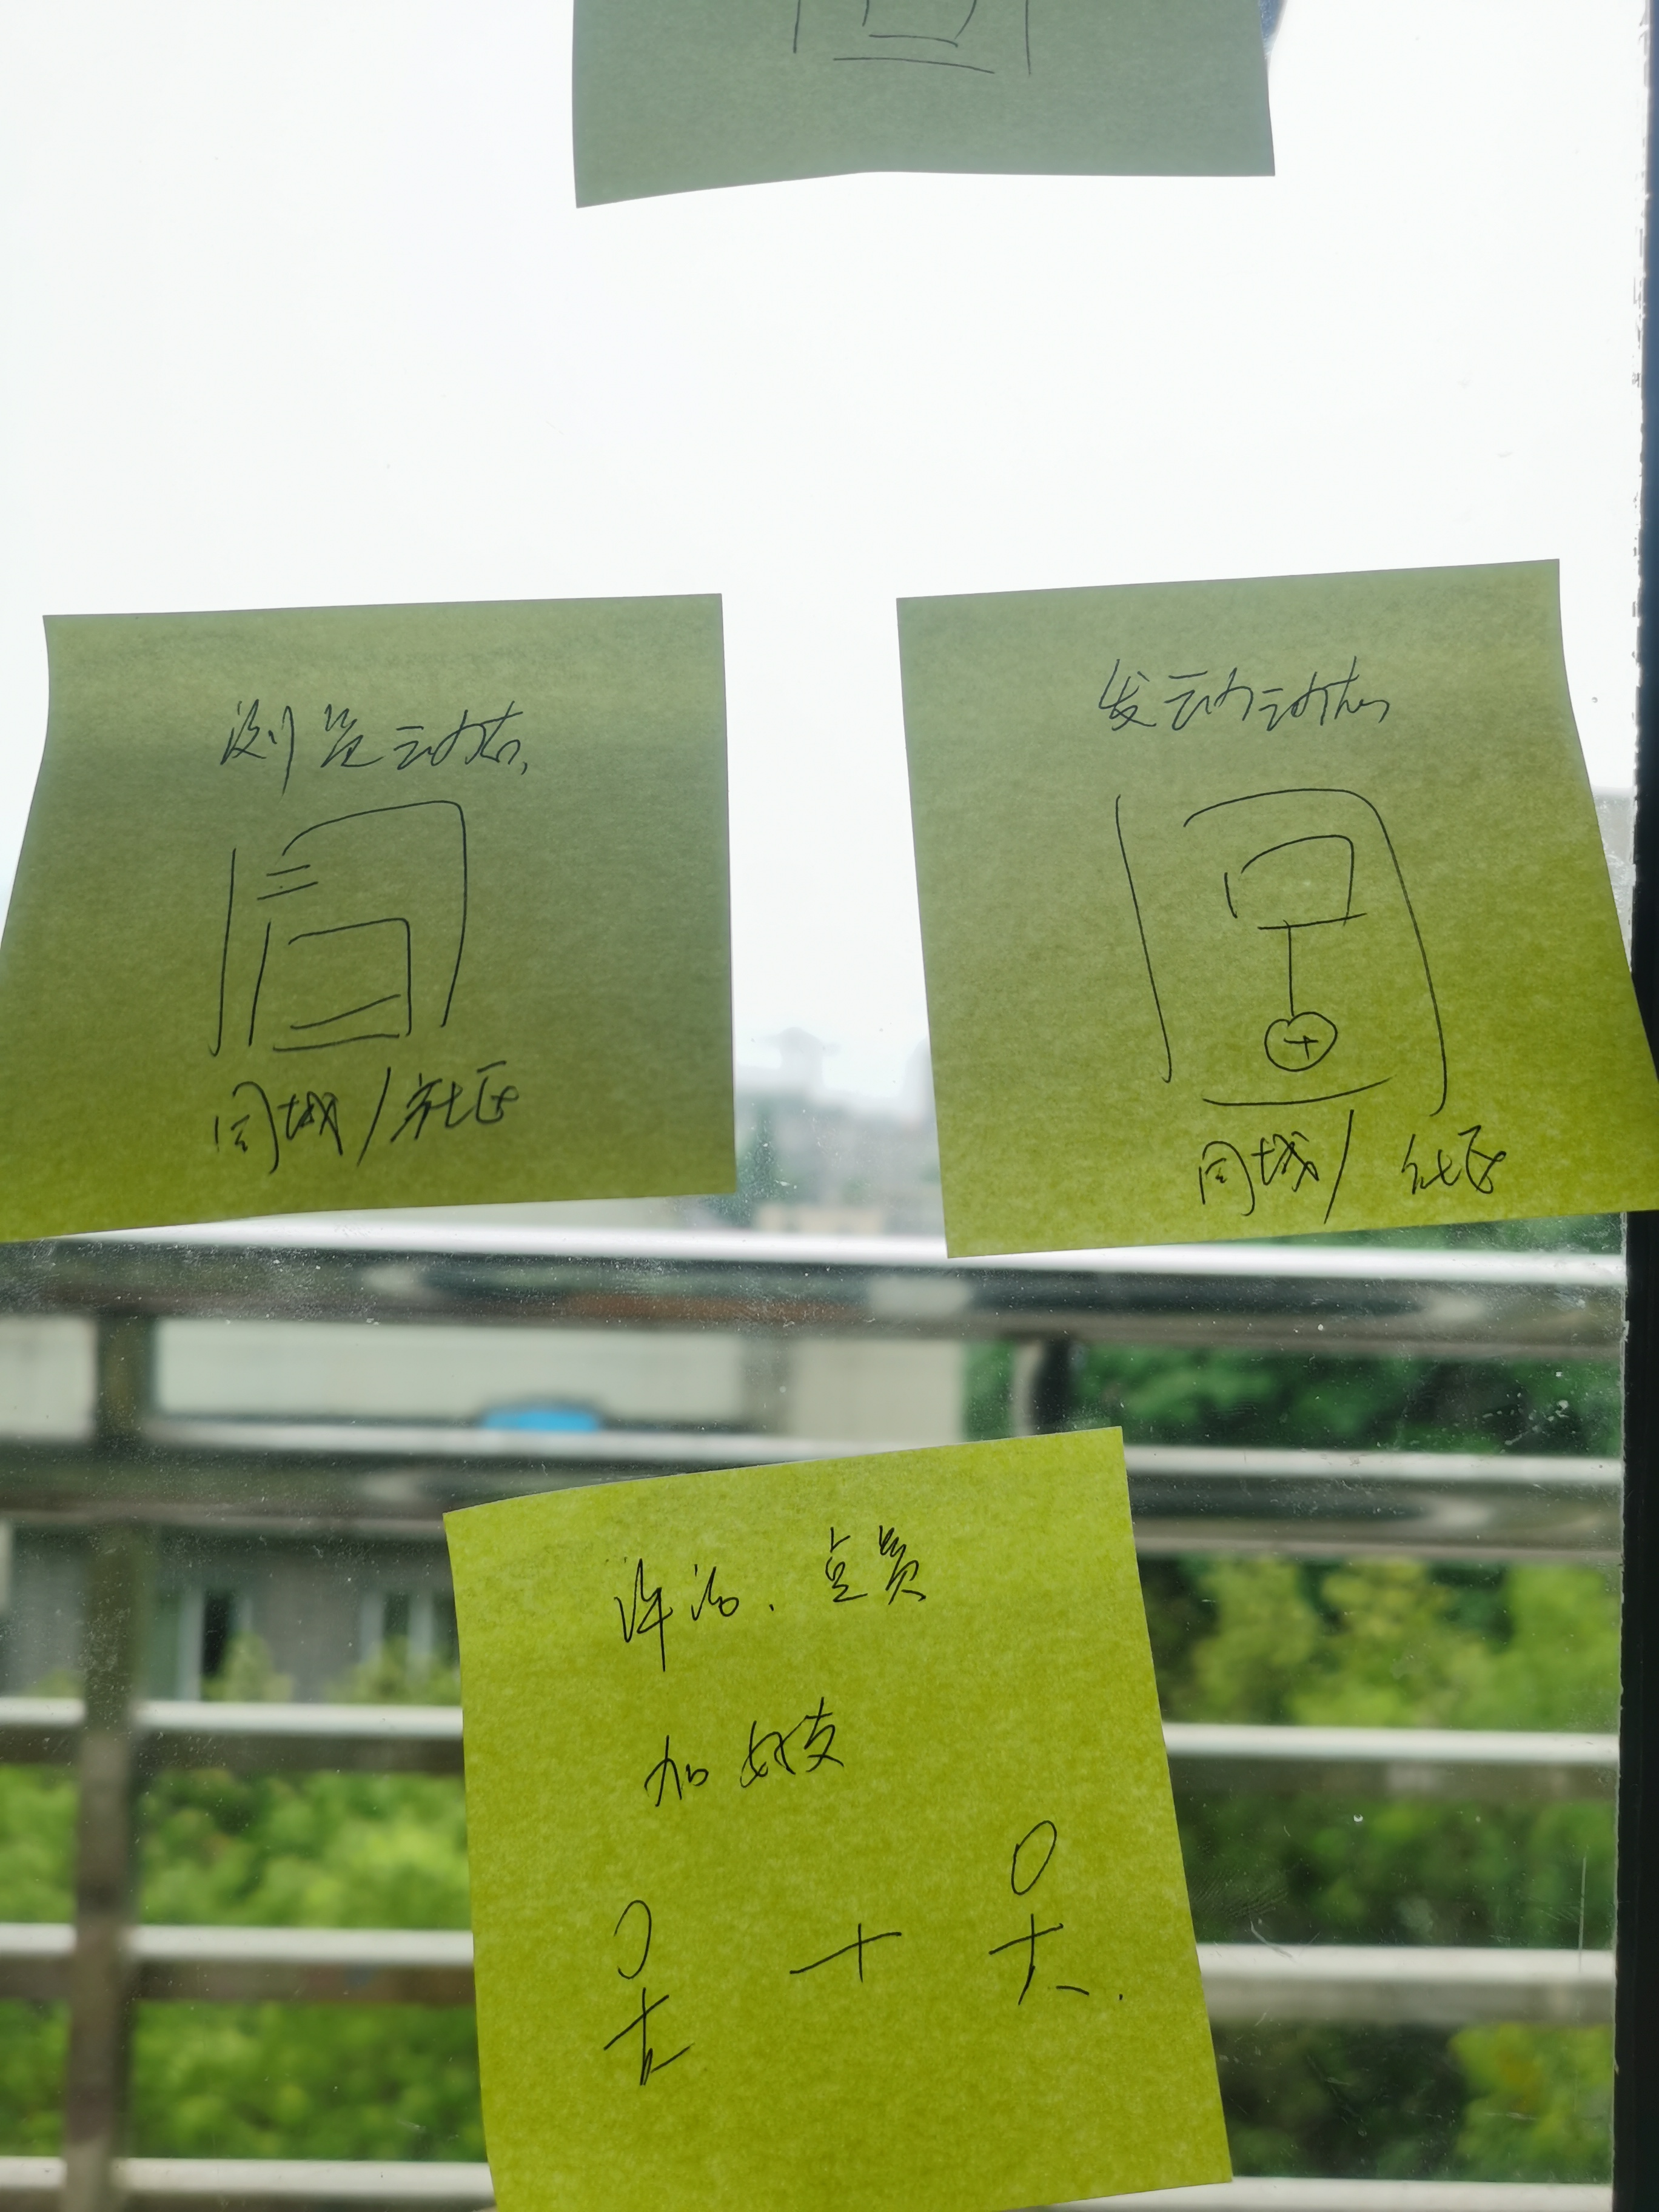 浏览动态
同城/社区
发动动态
同城/社区
评论、点赞
加好友